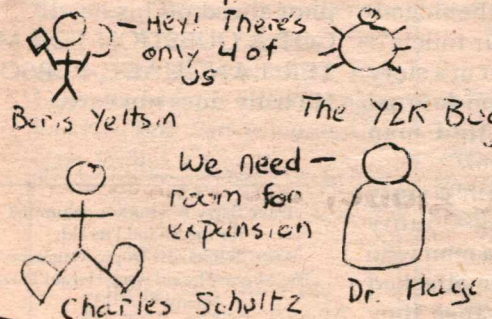 Hey! There's
only 4 of
us
Boris Yeltsin
The Y2K Bug
We need
room for
expansion
Charles Schultz
Dr. Hage